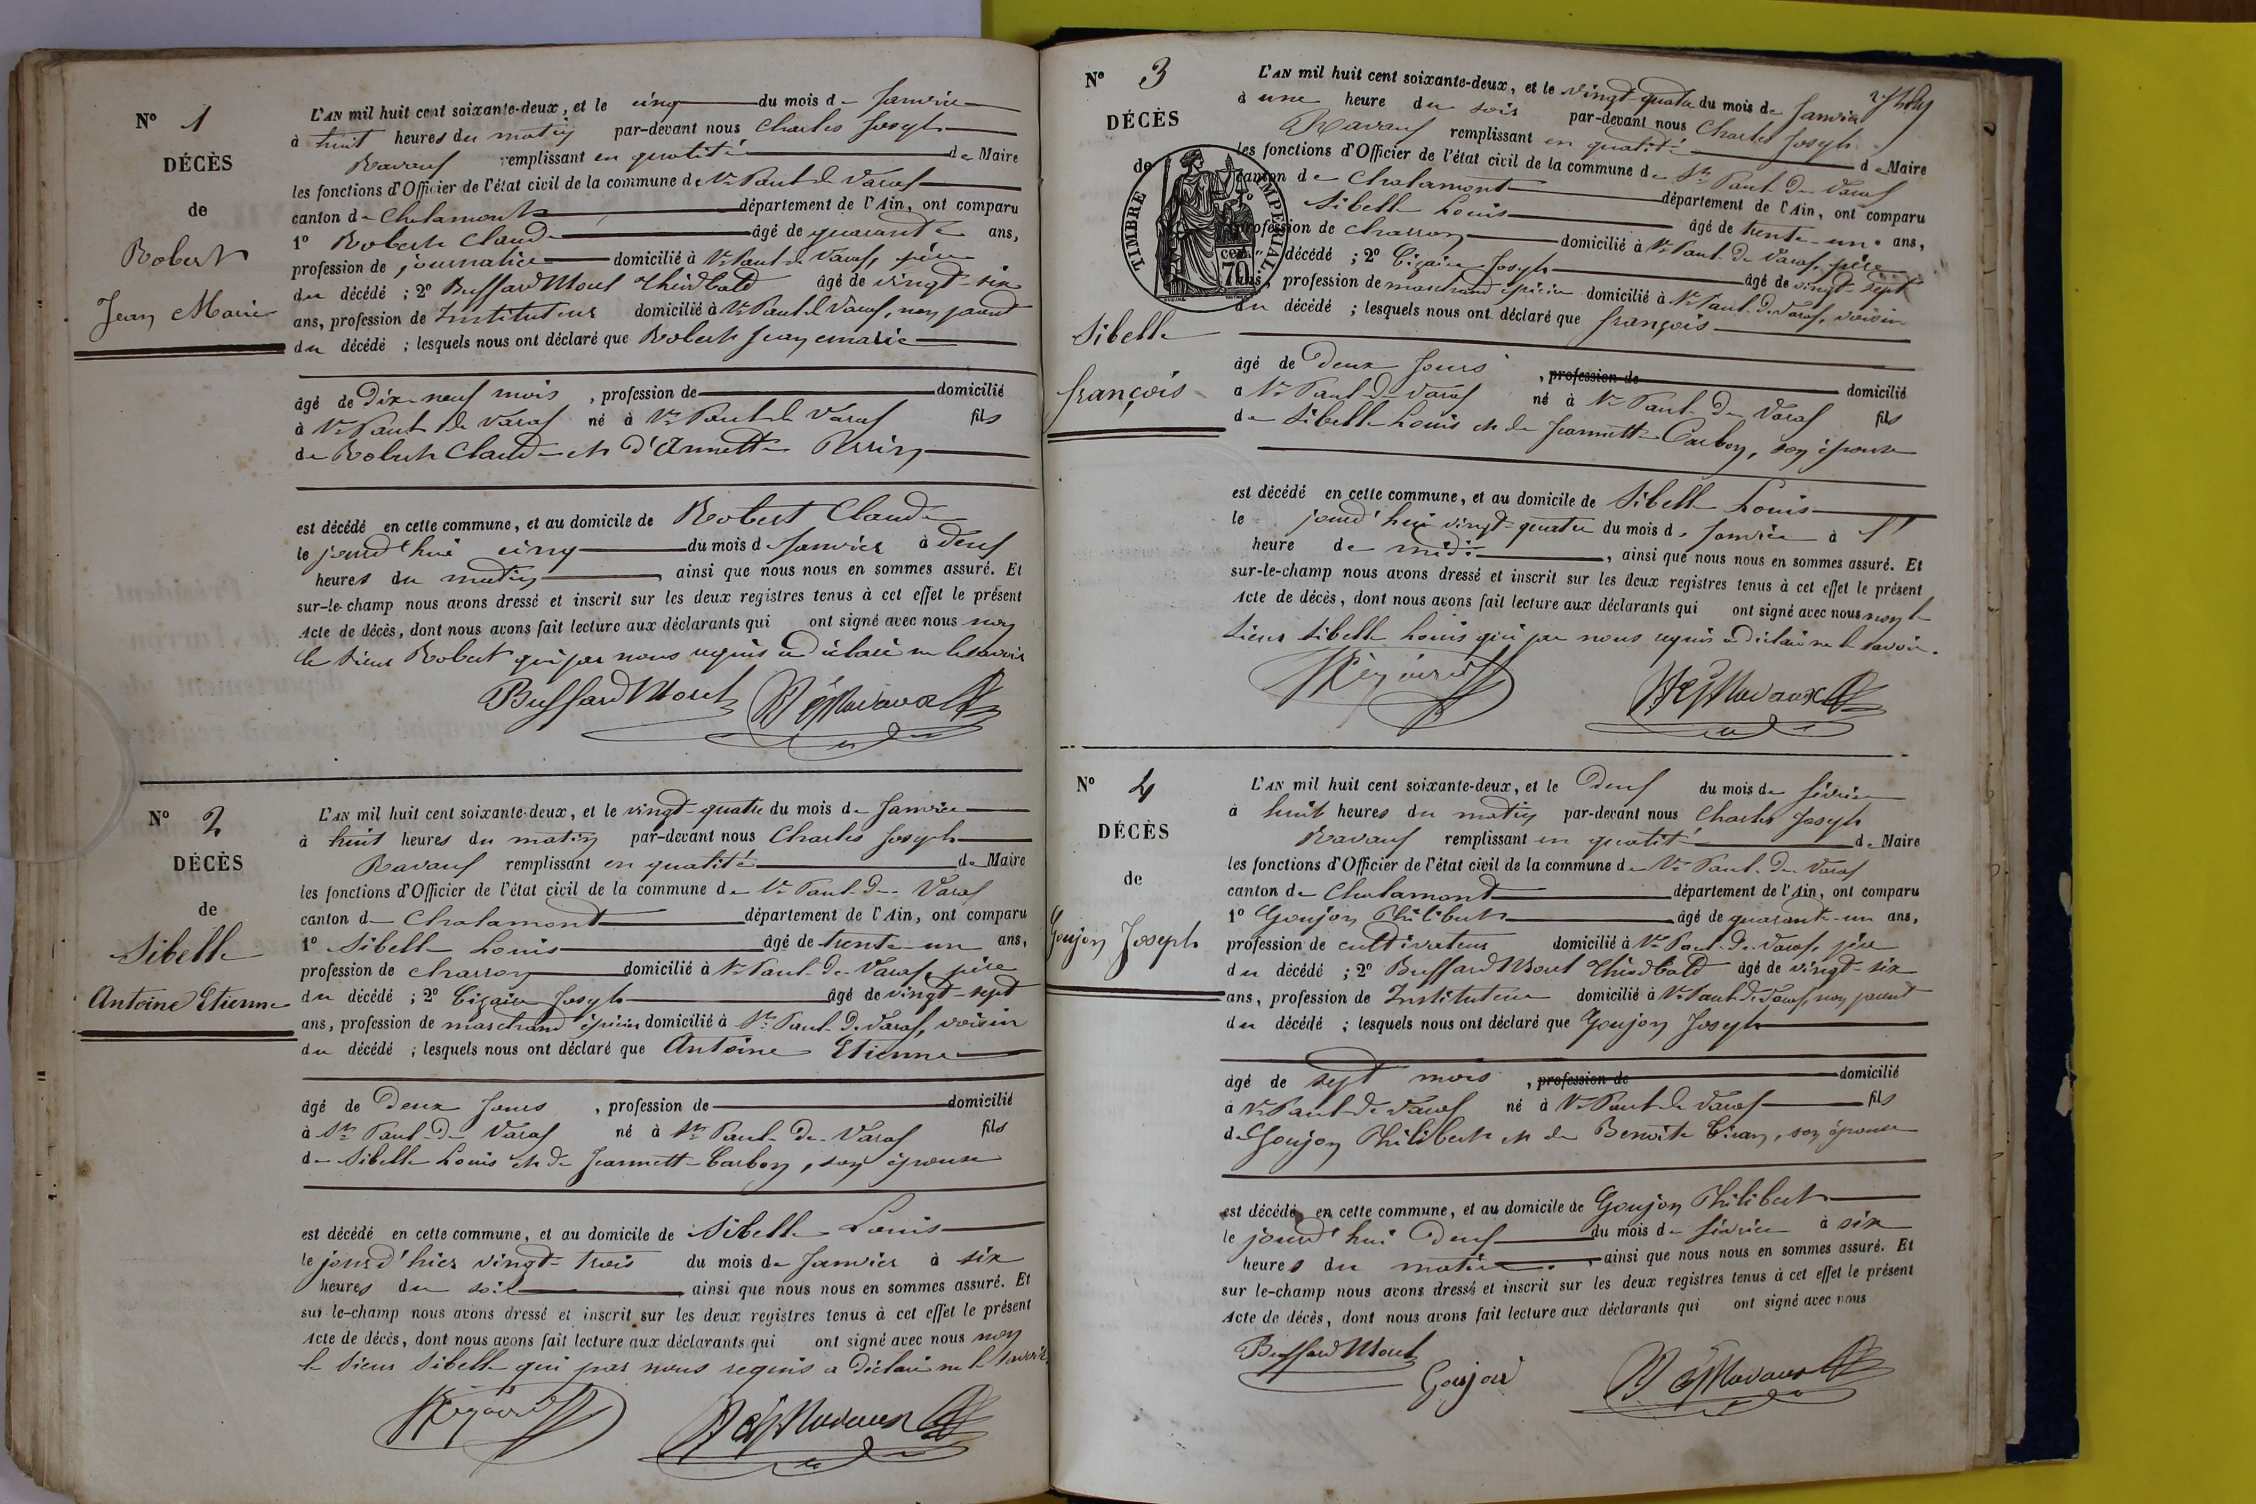 N° 1
DÉCÈS
de
Robert
Jean Marie
L'AN mil huit cent soixante-deux, et le cinq du mois de Janvier
à huit heures du matin par-devant nous Charles Joseph
Ravaux remplissant en qualité de Maire
les fonctions d'Officier de l'état civil de la commune de St Paul de Varax
canton de Chalamont département de l'Ain, ont comparu
1° Robert Claude âgé de quarante ans,
profession de journalier domicilié à St Paul de Varax, père
du décédé ; 2° Buffard Moret Théodbald âgé de vingt-six
ans, profession de Instituteur domicilié à St Paul de Varax, non parent
du décédé ; lesquels nous ont déclaré que Robert Jean Marie
âgé de Dix neuf mois , profession de domicilié
à St Paul de Varax né à St Paul de Varax fils
de Robert Claude et d'Annette Perrin
est décédé en cette commune, et au domicile de Robert Claude
le jourd'hui cinq du mois de Janvier à deux
heures du matin , ainsi que nous nous en sommes assuré. Et
sur-le-champ nous avons dressé et inscrit sur les deux registres tenus à cet effet le présent
Acte de décès, dont nous avons fait lecture aux déclarants qui ont signé avec nous non
le sieur Robert qui par nous requis a déclaré ne le savoir
Buffard Moret Ravaux
N° 2
DÉCÈS
de
Sibelle
Antoine Etienne
L'AN mil huit cent soixante-deux, et le vingt-quatre du mois de Janvier
à huit heures du matin par-devant nous Charles Joseph
Ravaux remplissant en qualité de Maire
les fonctions d'Officier de l'état civil de la commune de St Paul de Varax
canton de Chalamont département de l'Ain, ont comparu
1° Sibelle Louis âgé de trente-un ans,
profession de charron domicilié à St Paul de Varax, père
du décédé ; 2° Joseph âgé de vingt-sept
ans, profession de marchand épicier domicilié à St Paul de Varax, voisin
du décédé ; lesquels nous ont déclaré que Antoine Etienne
âgé de Deux Jours , profession de domicilié
à St Paul de Varax né à St Paul de Varax fils
de Sibelle Louis et de Jeannette Carbon, son épouse
est décédé en cette commune, et au domicile de Sibelle Louis
le jourd'hier vingt-trois du mois de Janvier à six
heures du soir ainsi que nous nous en sommes assuré. Et
sur le-champ nous avons dressé et inscrit sur les deux registres tenus à cet effet le présent
Acte de décès, dont nous avons fait lecture aux déclarants qui ont signé avec nous non
le sieur Sibelle qui par nous requis a déclaré ne le savoir.
Ravaux
N° 3
DÉCÈS
de
Sibelle
françois
TIMBRE IMPÉRIAL
70 cen.
L'AN mil huit cent soixante-deux, et le vingt-quatre du mois de Janvier
à une heure du soir par-devant nous Charles Joseph
Ravaux remplissant en qualité de Maire
les fonctions d'Officier de l'état civil de la commune de St Paul de Varax
canton de Chalamont département de l'Ain, ont comparu
Sibelle Louis âgé de trente-un ans,
profession de charron domicilié à St Paul de Varax, père
décédé ; 2° Joseph âgé de vingt-sept
ans, profession de marchand épicier domicilié à St Paul de Varax, voisin
du décédé ; lesquels nous ont déclaré que françois
âgé de Deux Jours , profession de domicilié
à St Paul de Varax né à St Paul de Varax fils
de Sibelle Louis et de Jeannette Carbon, son épouse
est décédé en cette commune, et au domicile de Sibelle Louis
le jourd'hui vingt-quatre du mois de Janvier à l'
heure de midi , ainsi que nous nous en sommes assuré. Et
sur-le-champ nous avons dressé et inscrit sur les deux registres tenus à cet effet le présent
Acte de décès, dont nous avons fait lecture aux déclarants qui ont signé avec nous non le
sieur Sibelle Louis qui par nous requis a déclaré ne le savoir.
Ravaux
N° 4
DÉCÈS
de
Goujon Joseph
L'AN mil huit cent soixante-deux, et le Deux du mois de février
à huit heures du matin par-devant nous Charles Joseph
Ravaux remplissant en qualité de Maire
les fonctions d'Officier de l'état civil de la commune de St Paul de Varax
canton de Chalamont département de l'Ain, ont comparu
1° Goujon Philibert âgé de quarante-un ans,
profession de cultivateur domicilié à St Paul de Varax, père
du décédé ; 2° Buffard Moret Théodbald âgé de vingt-six
ans, profession de Instituteur domicilié à St Paul de Varax, non parent
du décédé ; lesquels nous ont déclaré que Goujon Joseph
âgé de sept mois , profession de domicilié
à St Paul de Varax né à St Paul de Varax fils
de Goujon Philibert et de Benoite , son épouse
est décédé en cette commune, et au domicile de Goujon Philibert
le jourd'hui Deux du mois de février à six
heures du matin , ainsi que nous nous en sommes assuré. Et
sur le-champ nous avons dressé et inscrit sur les deux registres tenus à cet effet le présent
Acte de décès, dont nous avons fait lecture aux déclarants qui ont signé avec nous
Buffard Moret Goujon Ravaux